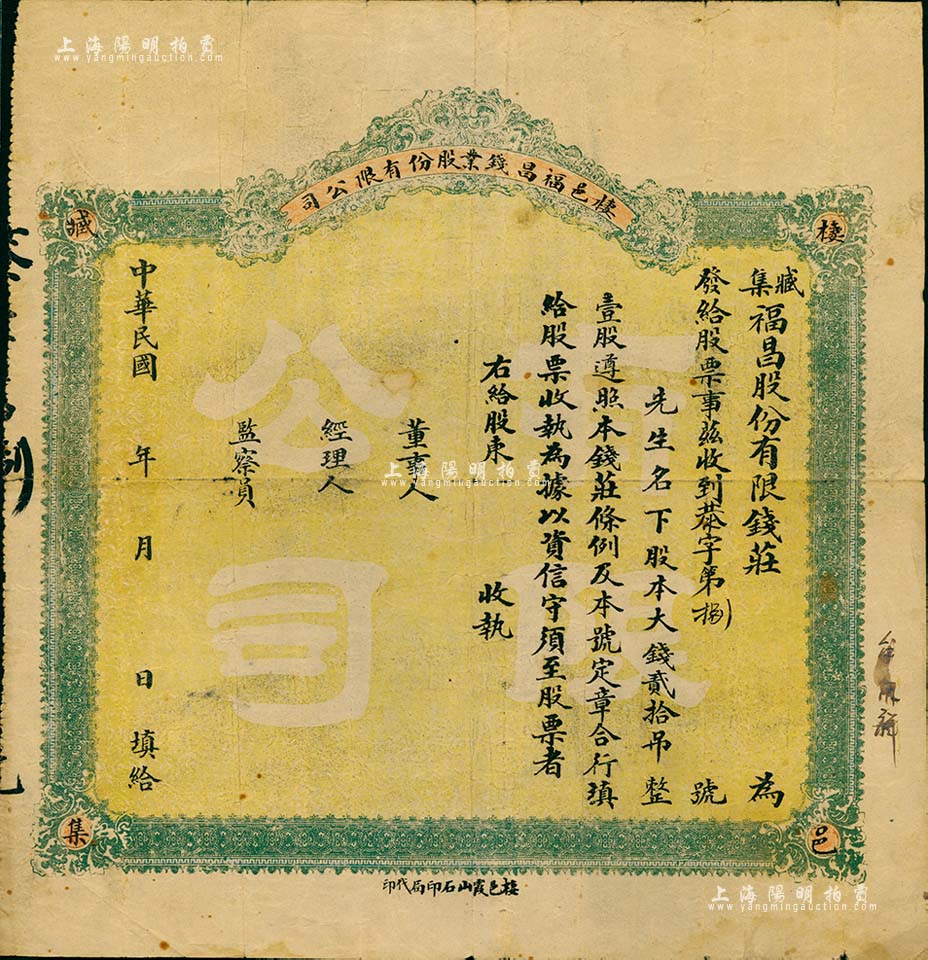 上海陽明拍賣
www.yangmingauction.com
棲邑福昌錢業股份有限公司
棲
臧
邑
集
臧集福昌股份有限錢莊為
發給股票事茲收到恭字第捌號
先生名下股本大錢貳拾吊整
壹股遵照本錢莊條例及本號定章合行填
給股票收執為據以資信守須至股票者
右給股東 收執
董事人
經理人
監察員
中華民國 年 月 日 填給
有限
公司
上海陽明拍賣
www.yangmingauction.com
棲邑霞山石印局代印
上海陽明拍賣
www.yangmingauction.com